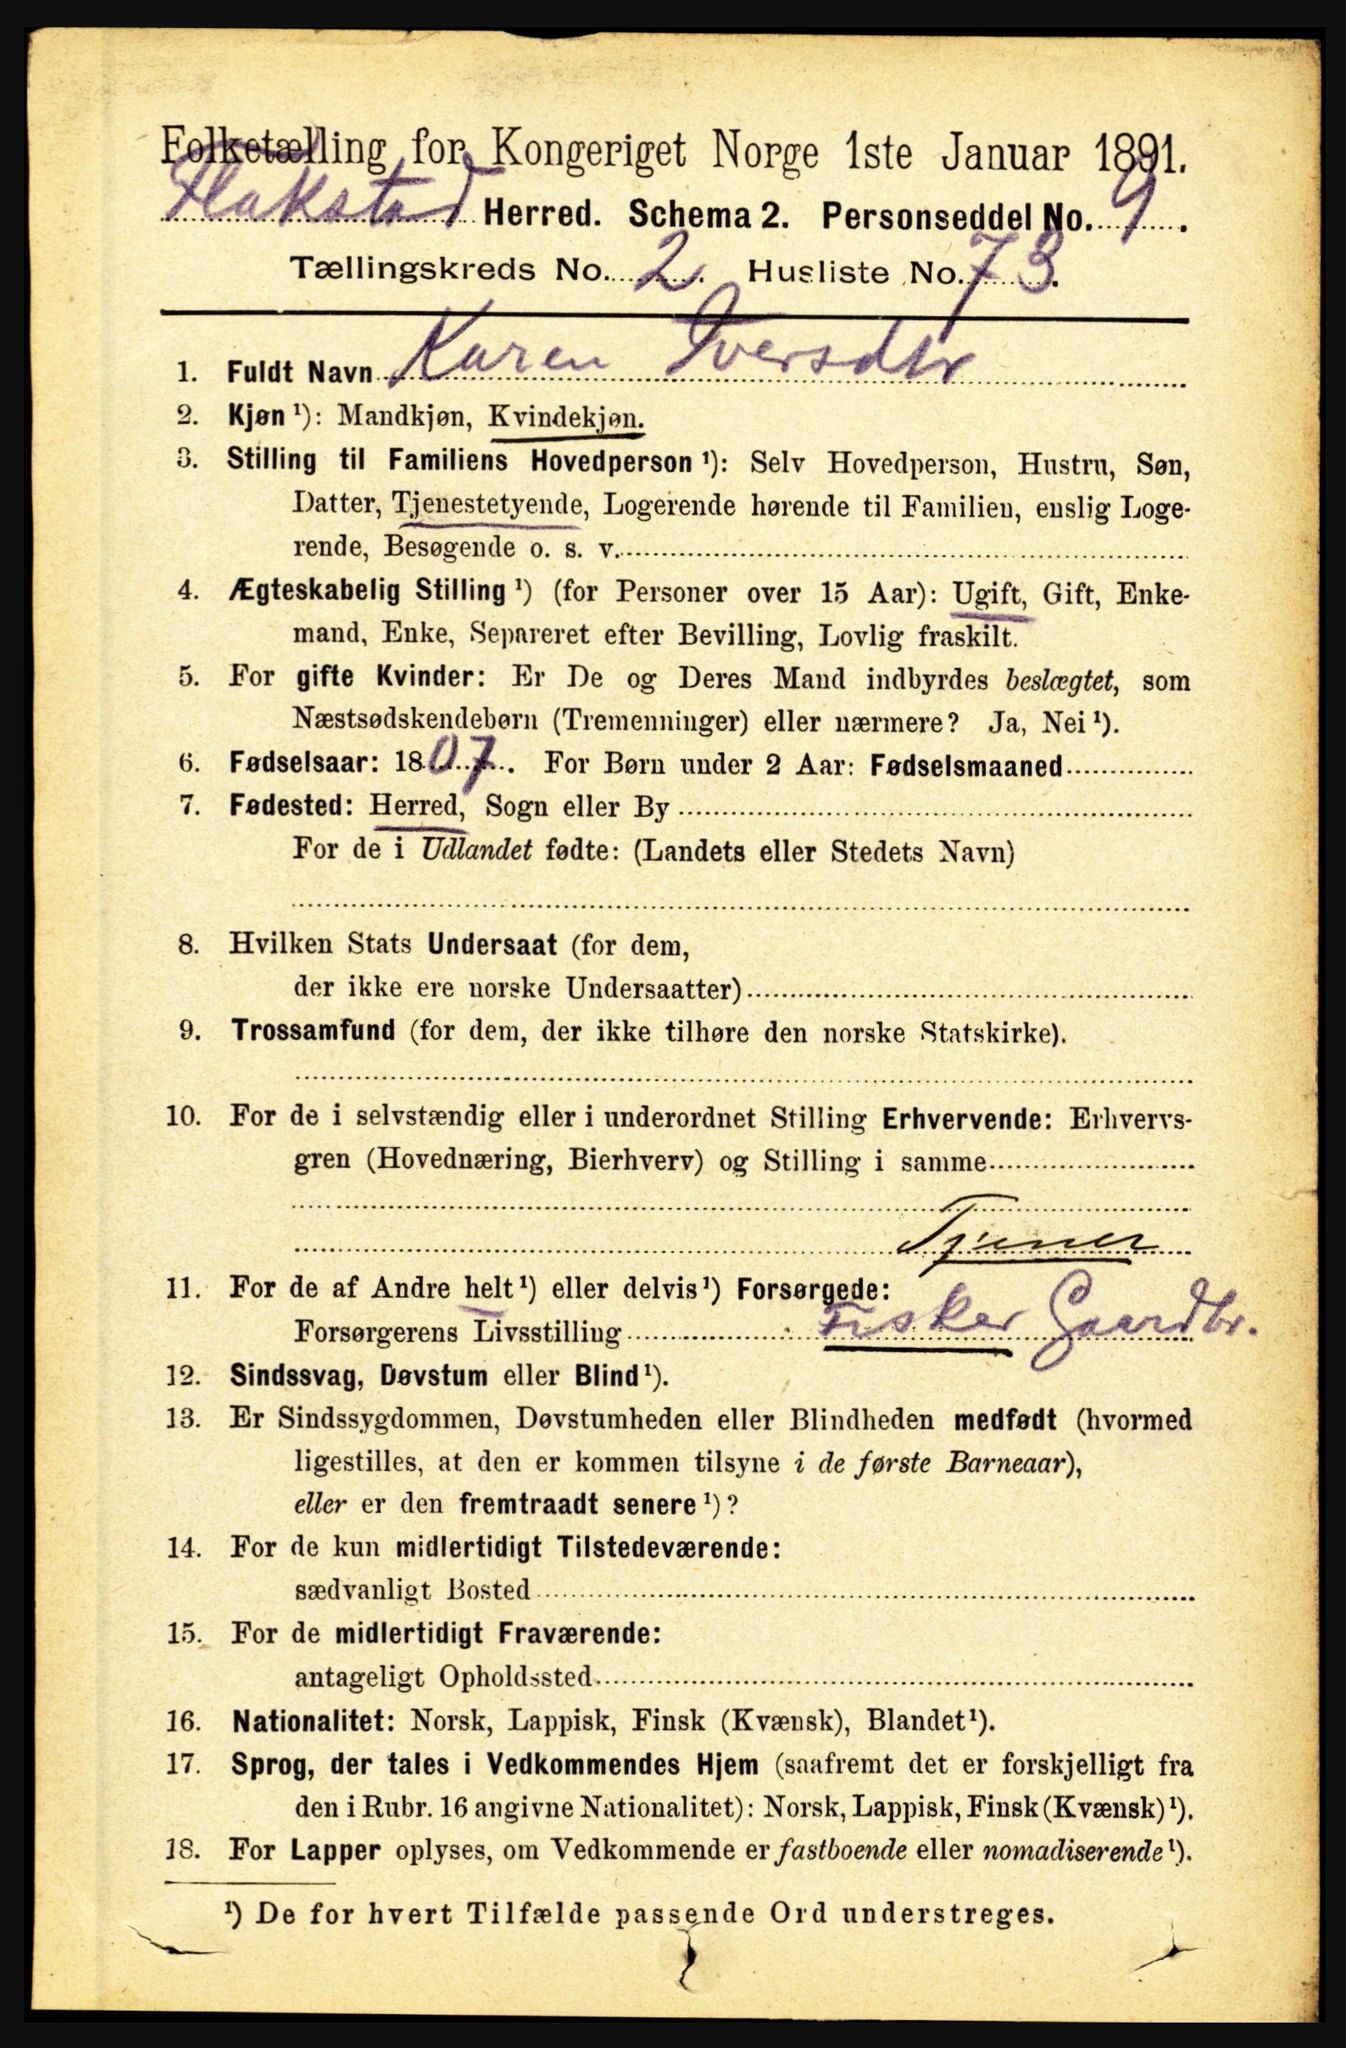 Folketælling for Kongeriget Norge 1ste Januar 1891.
Flakstad Herred. Schema 2. Personseddel No. 9.
Tællingskreds No. 2. Husliste No. 73.
1. Fuldt Navn Karen Iversdtr
2. Kjøn ¹): Mandkjøn, Kvindekjøn.
3. Stilling til Familiens Hovedperson ¹): Selv Hovedperson, Hustru, Søn,
Datter, Tjenestetyende, Logerende hørende til Familien, enslig Loge-
rende, Besøgende o. s. v.
4. Ægteskabelig Stilling ¹) (for Personer over 15 Aar): Ugift, Gift, Enke-
mand, Enke, Separeret efter Bevilling, Lovlig fraskilt.
5. For gifte Kvinder: Er De og Deres Mand indbyrdes beslægtet, som
Næstsødskendebørn (Tremenninger) eller nærmere? Ja, Nei ¹).
6. Fødselsaar: 1807. For Børn under 2 Aar: Fødselsmaaned
7. Fødested: Herred, Sogn eller By
For de i Udlandet fødte: (Landets eller Stedets Navn)
8. Hvilken Stats Undersaat (for dem,
der ikke ere norske Undersaatter)
9. Trossamfund (for dem, der ikke tilhøre den norske Statskirke).
10. For de i selvstændig eller i underordnet Stilling Erhvervende: Erhvervs-
gren (Hovednæring, Bierhverv) og Stilling i samme
Tjener
11. For de af Andre helt ¹) eller delvis ¹) Forsørgede:
Forsørgerens Livsstilling Fisker Gaardbr.
12. Sindssvag, Døvstum eller Blind ¹).
13. Er Sindssygdommen, Døvstumheden eller Blindheden medfødt (hvormed
ligestilles, at den er kommen tilsyne i de første Barneaar),
eller er den fremtraadt senere ¹)?
14. For de kun midlertidigt Tilstedeværende:
sædvanligt Bosted
15. For de midlertidigt Fraværende:
antageligt Opholdssted
16. Nationalitet: Norsk, Lappisk, Finsk (Kvænsk), Blandet ¹).
17. Sprog, der tales i Vedkommendes Hjem (saafremt det er forskjelligt fra
den i Rubr. 16 angivne Nationalitet): Norsk, Lappisk, Finsk (Kvænsk) ¹).
18. For Lapper oplyses, om Vedkommende er fastboende eller nomadiserende ¹).
¹) De for hvert Tilfælde passende Ord understreges.